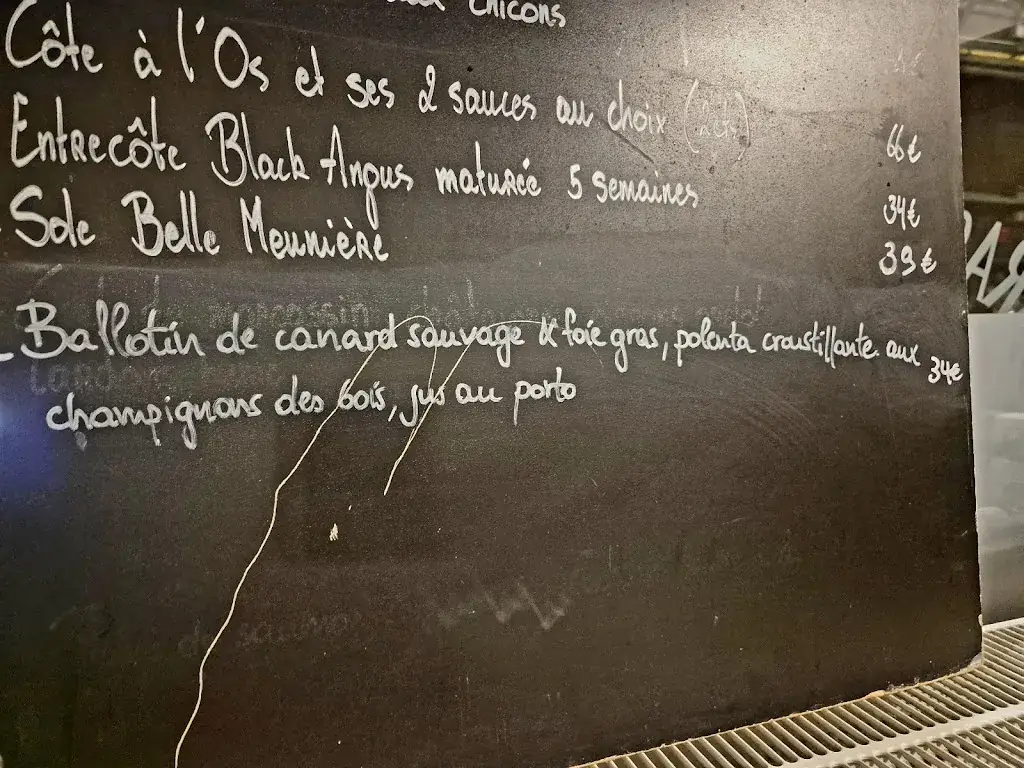 chicons
Côte à l'Os et ses 2 sauces au choix
66€
Entrecôte Black Angus maturée 5 semaines
34€
Sole Belle Meunière
39€
Ballotin de canard sauvage & foie gras, polenta croustillante aux
34€
champignons des bois, jus au porto